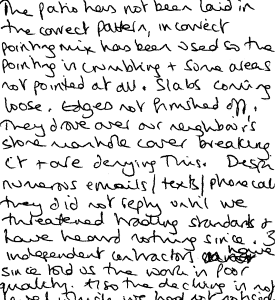 The patio has not been laid in
the correct pattern, incorrect
pointing mix has been used so the
pointing is crumbling + some areas
not pointed at all. Slabs coming
loose. Edges not finished off.
They drove over our neighbour's
stone manhole cover breaking
it + are denying this. Desp
numerous emails/texts/phonecal
they did not reply until we
threatened trading standards +
have heard nothing since. 3
independent contractors have
since told us the work is poor
quality. Also the decking is not
we had not noticed